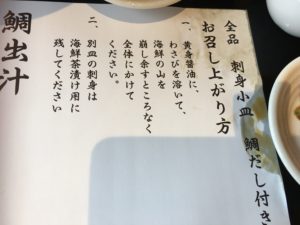 全品 刺身小皿 鯛だし付き
お召し上がり方
一、黄身醤油に、
わさびを溶いて、
海鮮の山を
崩し余すところなく
全体にかけて
ください。
二、別皿の刺身は
海鮮茶漬け用に
残してください
鯛出汁